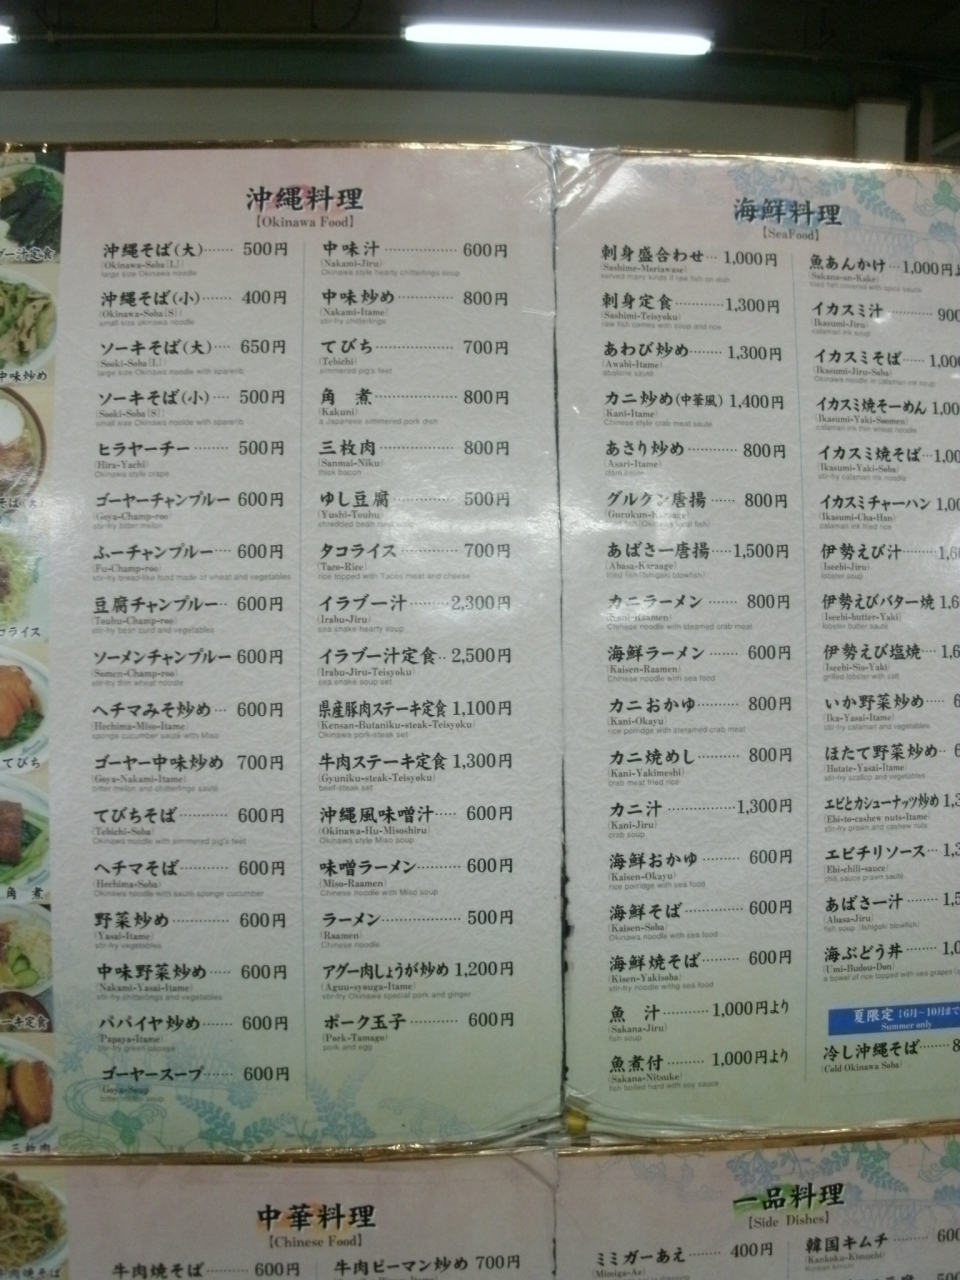 沖縄料理
【Okinawa Food】
沖縄そば(大)…… 500円
(Okinawa-Soba [L])
large size Okinawa noodle
沖縄そば(小)…… 400円
(Okinawa-Soba [S])
small size okinawa noodle
ソーキそば(大)… 650円
(Sooki-Soba [L])
large size Okinawa noodle with sparerib
ソーキそば(小)… 500円
(Sooki-Soba [S])
small size Okinawa noolde with sparerib
ヒラヤーチー…… 500円
(Hira-Yachi)
Okinawa style crape
ゴーヤーチャンプルー 600円
(Goya-Champ-roo)
stir-fry bitter melon
ふーチャンプルー… 600円
(Fu-Champ-roo)
stir-fry bread-like food made of wheat and vegetables
豆腐チャンプルー‥ 600円
(Touhu-Champ-roo)
stir-fry bean curd and vegetables
ソーメンチャンプルー 600円
(Somen-Champ-roo)
stir-fry thin wheat noodle
ヘチマみそ炒め… 600円
(Hechima-Miso-Itame)
sponge cucumber saute with Miso
ゴーヤー中味炒め 700円
(Goya-Nakami-Itame)
bitter melon and chitterlings saute
てびちそば……… 600円
(Tebichi-Soba)
Okinawa noodle with simmered pig's feet
ヘチマそば……… 600円
(Hechima-Soba)
Okinawa noodle with saute sponge cucumber
野菜炒め………… 600円
(Yasai-Itame)
stir-fry vegetables
中味野菜炒め…… 600円
(Nakami-Yasai-Itame)
stir-fry chitterlings and vegetables
パパイヤ炒め…… 600円
(Papaya-Itame)
stir-fry green papaya
ゴーヤースープ…… 600円
(Goya-Soup)
bitter melon soup
中味汁……………… 600円
(Nakami-Jiru)
Okinawa style hearty chitterlings soup
中味炒め………… 800円
(Nakami-Itame)
stir-fry chitterlings
てびち…………… 700円
(Tebichi)
simmered pig's feet
角 煮…………… 800円
(Kakuni)
a Japanese simmered pork dish
三枚肉…………… 800円
(Sanmai-Niku)
thick bacon
ゆし豆腐………… 500円
(Yushi-Touhu)
shredded bean curd soup
タコライス……… 700円
(Taco-Rice)
rice topped with Tacos meat and cheese
イラブー汁………2,300円
(Irabu-Jiru)
sea snake hearty soup
イラブー汁定食‥2,500円
(Irabu-Jiru-Teisyoku)
sea snake soup set
県産豚肉ステーキ定食 1,100円
(Kensan-Butaniku-steak-Teisyoku)
Okinawa pork-steak set
牛肉ステーキ定食 1,300円
(Gyuniku-steak-Teisyoku)
beef-steak set
沖縄風味噌汁…… 600円
(Okinawa-Hu-Misoshiru)
Okinawa style Miso soup
味噌ラーメン……… 600円
(Miso-Raamen)
Chinese noodle with Miso soup
ラーメン………… 500円
(Raamen)
Chinese noodle
アグー肉しょうが炒め 1,200円
(Aguu-syouga-Itame)
stir-fry Okinawa special pork and ginger
ポーク玉子……… 600円
(Pork-Tamago)
pork and egg
海鮮料理
【SeaFood】
刺身盛合わせ… 1,000円
(Sashime-Moriawase)
served many kinds if raw fish on dish
刺身定食…………1,300円
(Sashimi-Teisyoku)
raw fish comes with soup and rice
あわび炒め…… 1,300円
(Awabi-Itame)
abalone saute
カニ炒め(中華風) 1,400円
(Kani-Itame)
Chinese style crab meat saute
あさり炒め……… 800円
(Asari-Itame)
グルクン唐揚…… 800円
(Gurukun-Karaage)
あばさー唐揚…1,500円
(Abasa-Karaage)
fried fish(Ishigaki blowfish)
カニラーメン …… 800円
(Kani-Raamen)
Chinese noodle with steamed crab meat
海鮮ラーメン …… 600円
(Kaisen-Raamen)
Chinese noodle with sea food
カニおかゆ……… 800円
(Kani-Okayu)
rice porridge with steamed crab meat
カニ焼めし……… 800円
(Kani-Yakimeshi)
crab meat fried rice
カニ汁……………1,300円
(Kani-Jiru)
crab soup
海鮮おかゆ……… 600円
(Kaisen-Okayu)
rice porridge with sea food
海鮮そば………… 600円
(Kaisen-Soba)
Okinawa noodle with sea food
海鮮焼そば……… 600円
(Kisen-Yakisoba)
stir-fry noodle withg sea food
魚 汁……… 1,000円より
(Sakana-Jiru)
fish soup
魚煮付……… 1,000円より
(Sakana-Nitsuke)
fish boiled hard with soy sauce
魚あんかけ…1,000円
(Sakana-an-Kake)
fried fish covered with spice sauce
イカスミ汁
(Ikasumi-Jiru)
calamari ink soup
イカスミそば……
(Ikasumi-Jiru-Soba)
Okinawa noodle in calamari ink soup
イカスミ焼そーめん
(Ikasumi-Yaki-Soomen)
calamari ink thin wheat noodle
イカスミ焼そば…
(Ikasumi-Yaki-Soba)
stir-fry calamari ink noodle
イカスミチャーハン
(Ikasumi-Cha-Han)
calamari ink fried rice
伊勢えび汁………
(Isechi-Jiru)
lobster soup
伊勢えびバター焼
(Isechi-butter-Yaki)
lobster butter saute
伊勢えび塩焼…
(Isechi-Sio-Yaki)
grilled lobster with salt
いか野菜炒め…
(Ika-Yasai-Itame)
stir-fry calamari and vegetables
ほたて野菜炒め‥
(Hotate-Yasai-Itame)
stir-fry scallop and vegetables
エビとカシューナッツ炒め
(Ebi-to-cashew nuts-Itame)
stir-fry prawn and cashew nuts
エビチリソース…
(Ebi-chili-sauce)
chili sauce prawn saute
あばさー汁……
(Abasa-Jiru)
fish soup (Ishigaki blowfish)
海ぶどう丼……
(Umi-Budou-Don)
a bowl of rice topped with sea grapes
夏限定 [6月～10月まで
Summer only
冷し沖縄そば……
(Cold Okinawa Soba)
中華料理
【Chinese Food】
牛肉焼そば……… 600円
牛肉ピーマン炒め 700円
一品料理
【Side Dishes】
ミミガーあえ…… 400円
(Mimiga-Ae)
韓国キムチ………
(Kankoku-Kimuchi)
Korean kimchi
中味炒め
てびち
角 煮
三枚肉